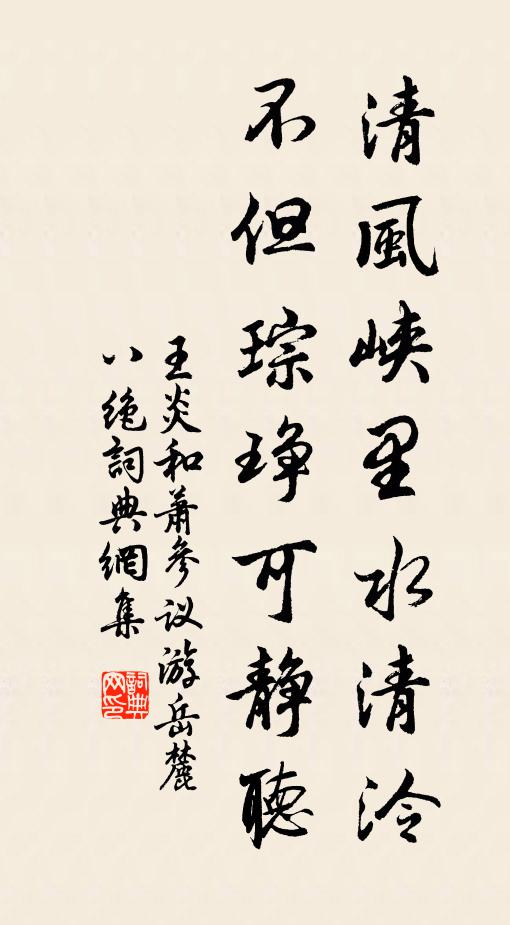 清風峡里水清泠
不但琮琤可靜聽
王炎和蕭參议游岳麓
八绝詞典網集
詞典网印